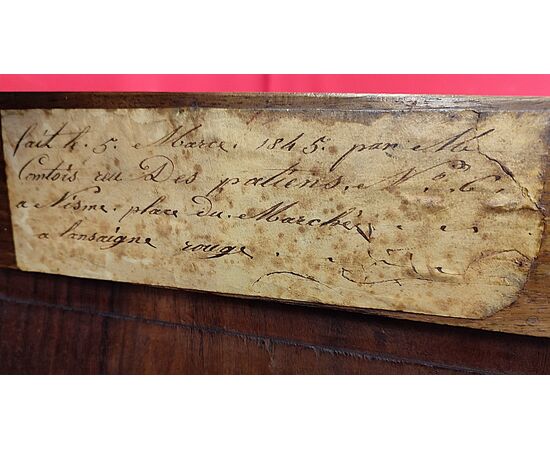 fait le 5. Marce. 1845. par Mr
Comtois rue Des patiens. N.o 6.
a Nisme. place du. Marché
a lansaigne rouge